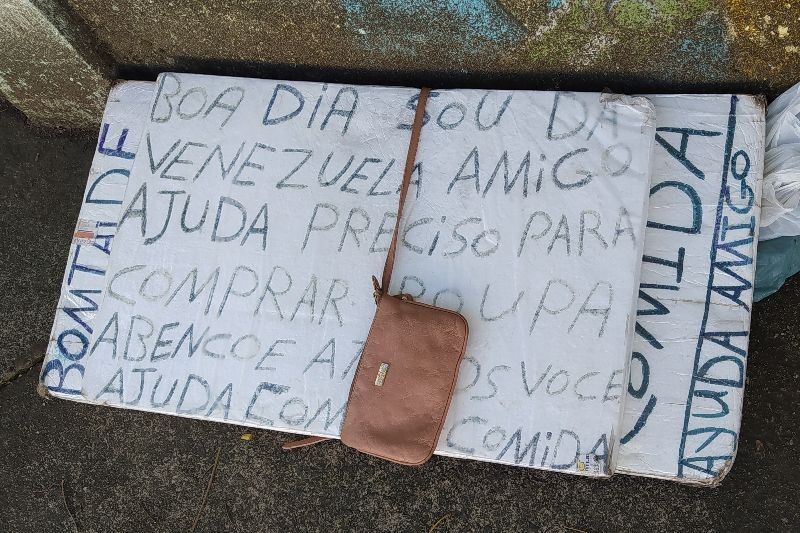 BOA DIA SOU DA
VENEZUELA AMIGO
AJUDA PRECISO PARA
COMPRAR ROUPA
ABENCOE VOCE
AJUDA COM COMIDA
BOMTAIDE
COMIDA
AYUDA AMIGO